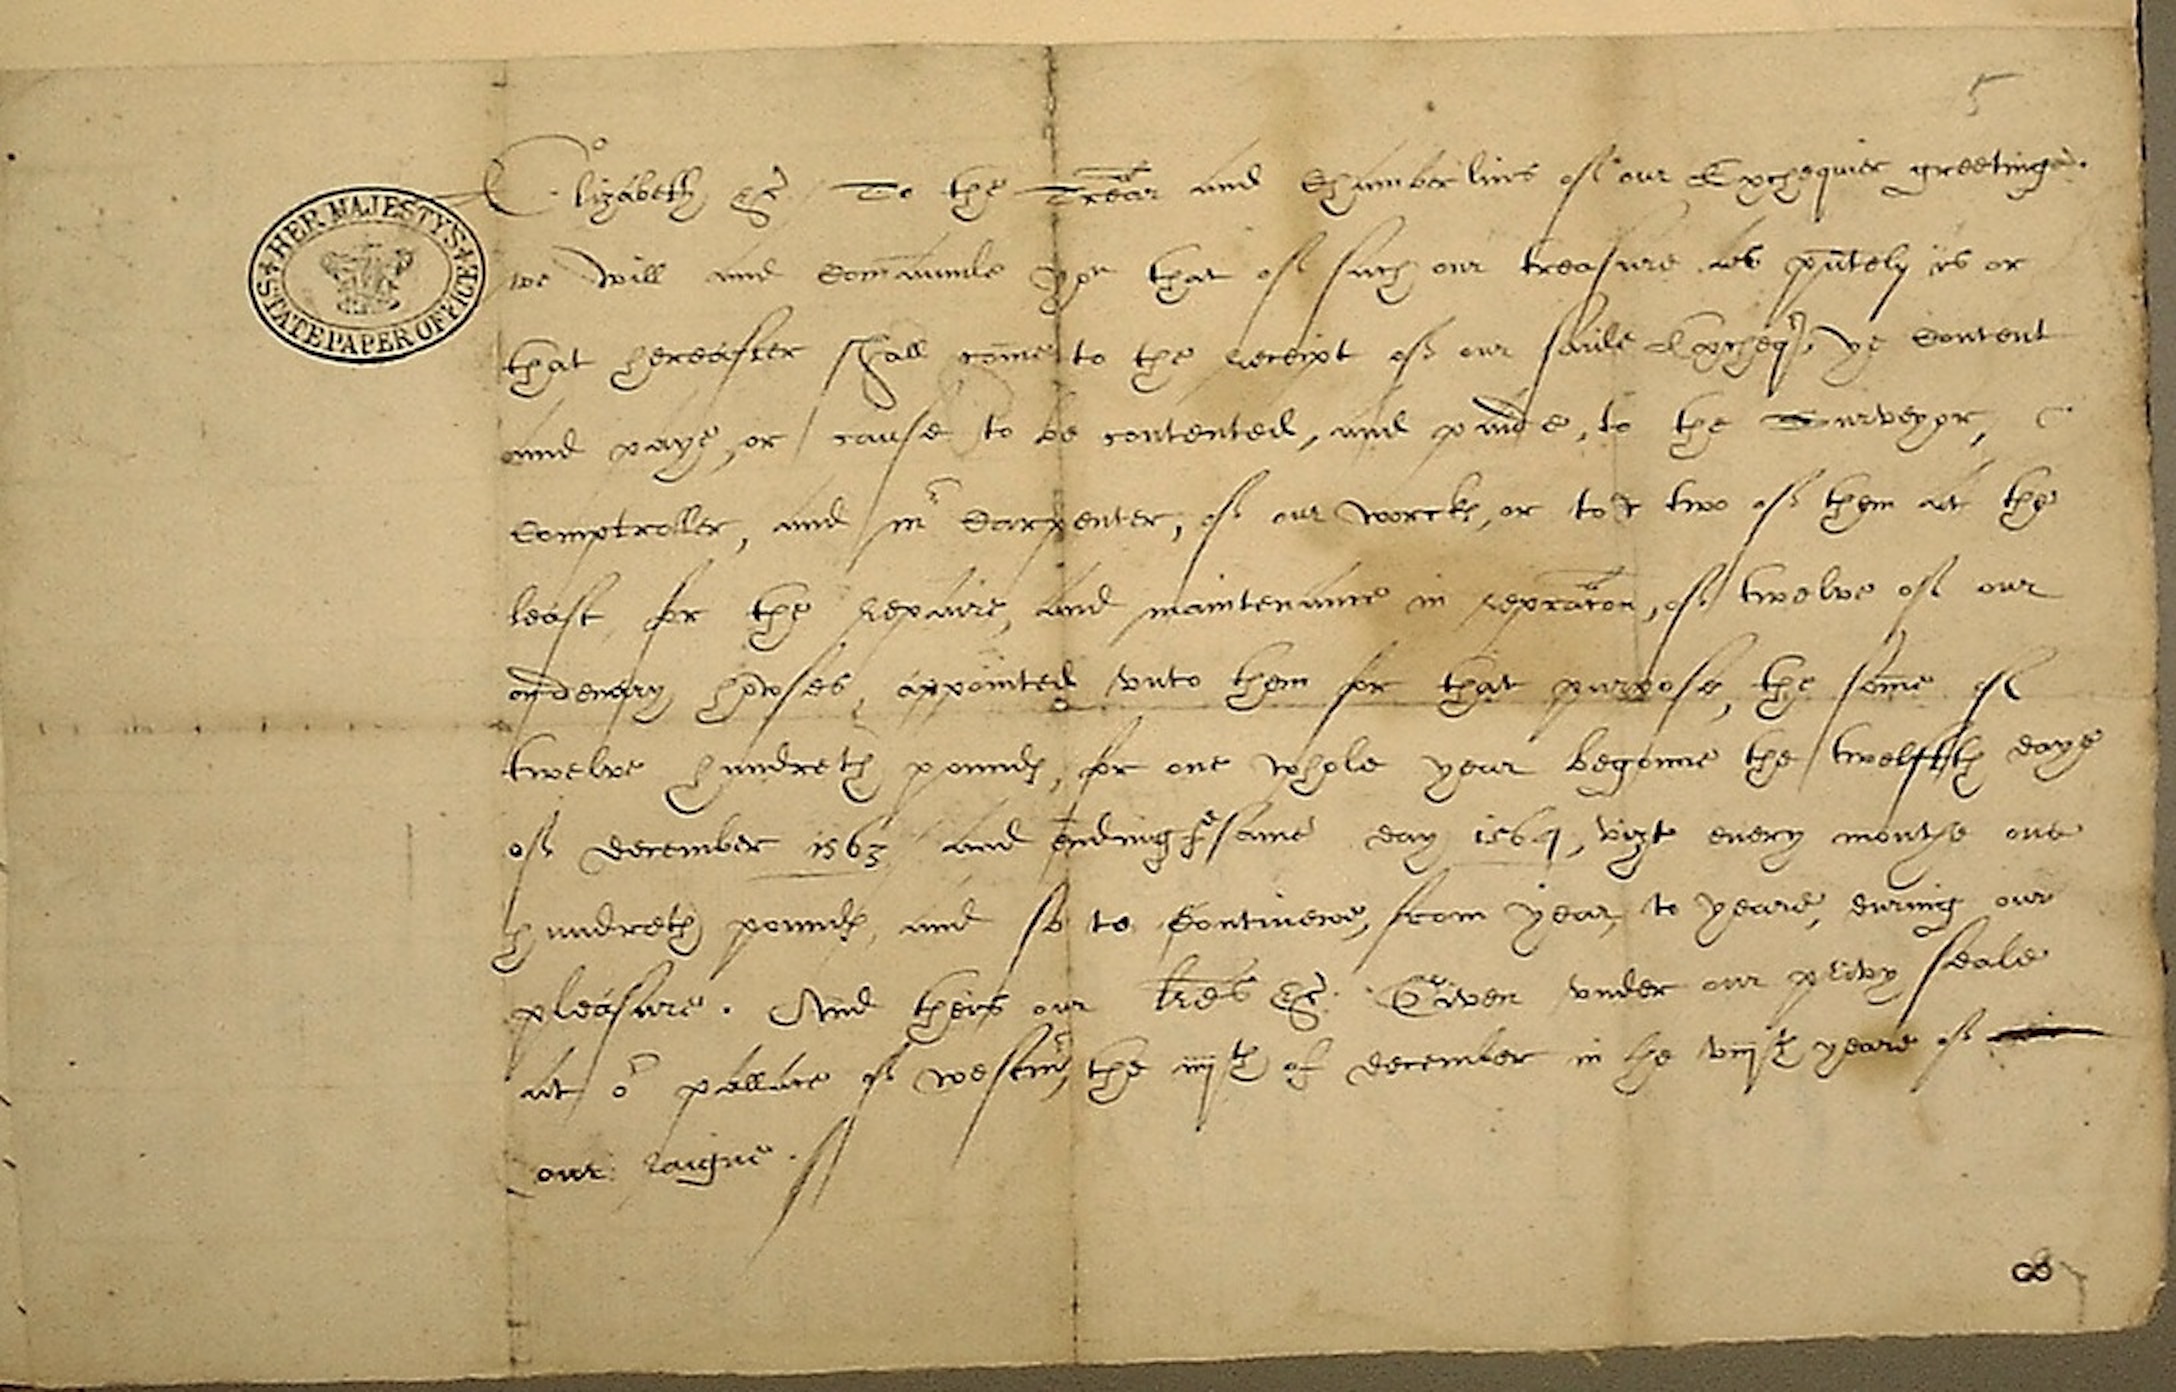 5
Elizabeth &c. To the Trear and Chamberlins of our Exchequier greetinge.
HER MAJESTY'S STATE PAPER OFFICE
we will and Comaunde you that of such our treasure as pntely is or
that hereafter shall come to the receipt of our saide Exchequr, ye content
and paye, or cause to be contented, and paide, to the Surveyor,
Comptroller, and mr Carpenter, of our workes, or to two of them at the
least for the repaire, and maintenance in repracon, of twelve of our
ordenary howses, appointed vnto them for that purpose, the some of
twelve hundreth poundes, for one whole year begonne the twelfth daye
of december 1563 and ending the same day 1564, vizt every monthe one
hundreth poundes, and so to Contineue, from year, to yeare, during our
pleasure. And theis our lres &c. Given vnder our privy seale
at or pallace of westmr, the iiijth of december in the viijth yeare of
our raigne.
87